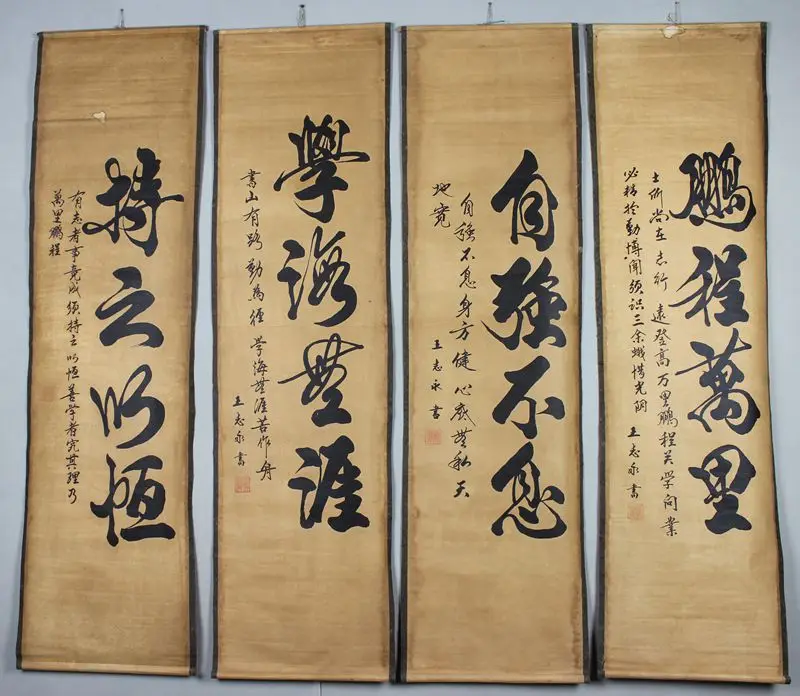 鵬程萬里
士所尚在志行遠登高万里鵬程关学问業
必精於勤博聞須識三余惜光阴
王志永書
自強不息
自強不息身方健心底無私天
地寬
王志永書
學海無涯
書山有路勤為徑学海無涯苦作舟
王志永書
持之以恒
有志者事竟成須持之以恒善学者究其理乃
萬里鵬程